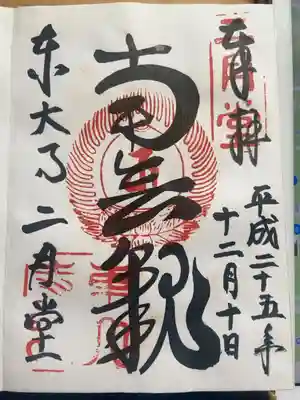 奉拝
平成二十五年
十二月十日
南無観
東大寺二月堂